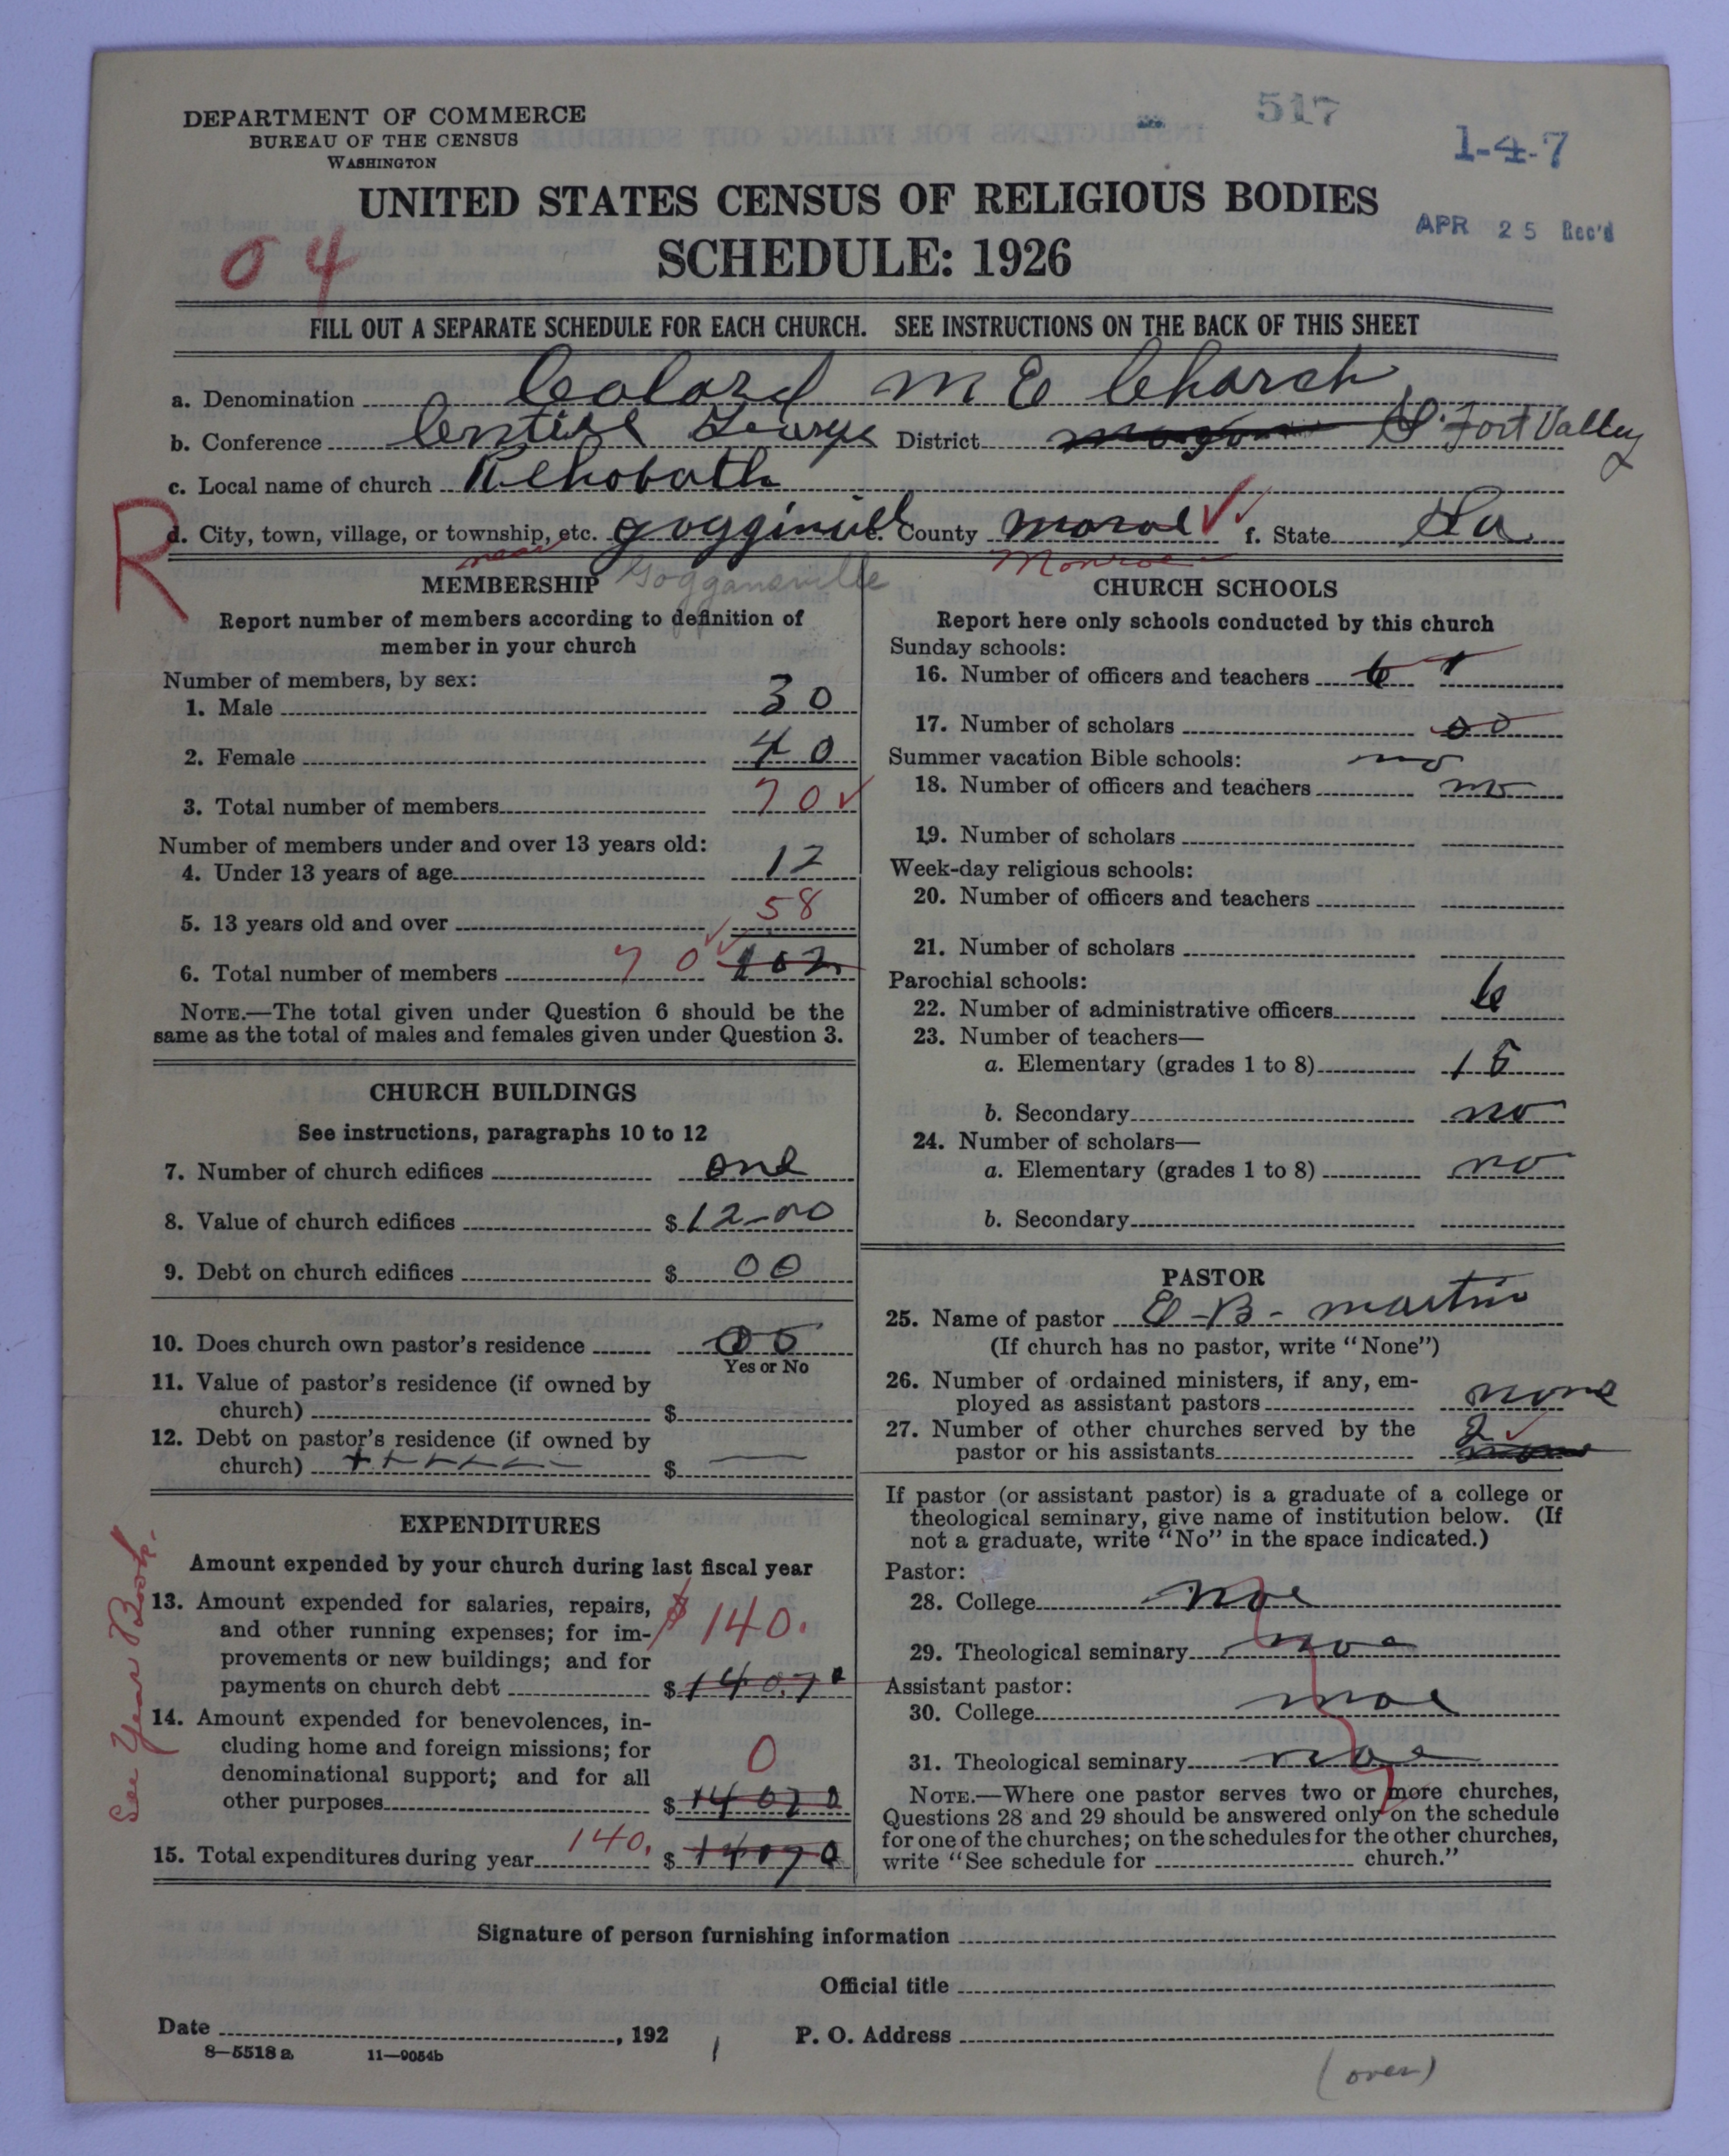 DEPARTMENT OF COMMERCE
BUREAU OF THE CENSUS
WASHINGTON
517
1-4-7
UNITED STATES CENSUS OF RELIGIOUS BODIES
SCHEDULE: 1926
APR 25 Rec'd
04
FILL OUT A SEPARATE SCHEDULE FOR EACH CHURCH. SEE INSTRUCTIONS ON THE BACK OF THIS SHEET
a. Denomination Colord M E Charch
b. Conference District Fort Valley
c. Local name of church Rehobath
R
d. City, town, village, or township, etc. gogginvill e. County moral f. State Ga
near Goggansville Monroe
MEMBERSHIP
Report number of members according to definition of
member in your church
Number of members, by sex:
1. Male 30
2. Female 40
3. Total number of members 70
Number of members under and over 13 years old:
4. Under 13 years of age 12
5. 13 years old and over 58
6. Total number of members 70 102
NOTE.—The total given under Question 6 should be the
same as the total of males and females given under Question 3.
CHURCH BUILDINGS
See instructions, paragraphs 10 to 12
7. Number of church edifices one
8. Value of church edifices $12-00
9. Debt on church edifices $ 00
10. Does church own pastor's residence
Yes or No
11. Value of pastor's residence (if owned by
church) $
12. Debt on pastor's residence (if owned by
church) $
EXPENDITURES
Amount expended by your church during last fiscal year
See Year Book.
13. Amount expended for salaries, repairs,
and other running expenses; for im-
provements or new buildings; and for
payments on church debt $140. $140.70
14. Amount expended for benevolences, in-
cluding home and foreign missions; for
denominational support; and for all
other purposes 0 $14070
15. Total expenditures during year 140. $14070
CHURCH SCHOOLS
Report here only schools conducted by this church
Sunday schools:
16. Number of officers and teachers
17. Number of scholars
Summer vacation Bible schools: no
18. Number of officers and teachers no
19. Number of scholars
Week-day religious schools:
20. Number of officers and teachers
21. Number of scholars
Parochial schools:
22. Number of administrative officers 6
23. Number of teachers—
a. Elementary (grades 1 to 8) 15
b. Secondary no
24. Number of scholars—
a. Elementary (grades 1 to 8) no
b. Secondary
PASTOR
25. Name of pastor E-B- martin
(If church has no pastor, write "None")
26. Number of ordained ministers, if any, em-
ployed as assistant pastors none
27. Number of other churches served by the
pastor or his assistants 2
If pastor (or assistant pastor) is a graduate of a college or
theological seminary, give name of institution below. (If
not a graduate, write "No" in the space indicated.)
Pastor:
28. College noe
29. Theological seminary noe
Assistant pastor:
30. College noe
31. Theological seminary noe
NOTE.—Where one pastor serves two or more churches,
Questions 28 and 29 should be answered only on the schedule
for one of the churches; on the schedules for the other churches,
write "See schedule for church."
Signature of person furnishing information
Official title
Date , 192 P. O. Address
8—5518 a 11—9054b
(over)